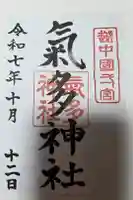 越中國一宮
氣多神社
氣多
神社
令和七年十月
十二日